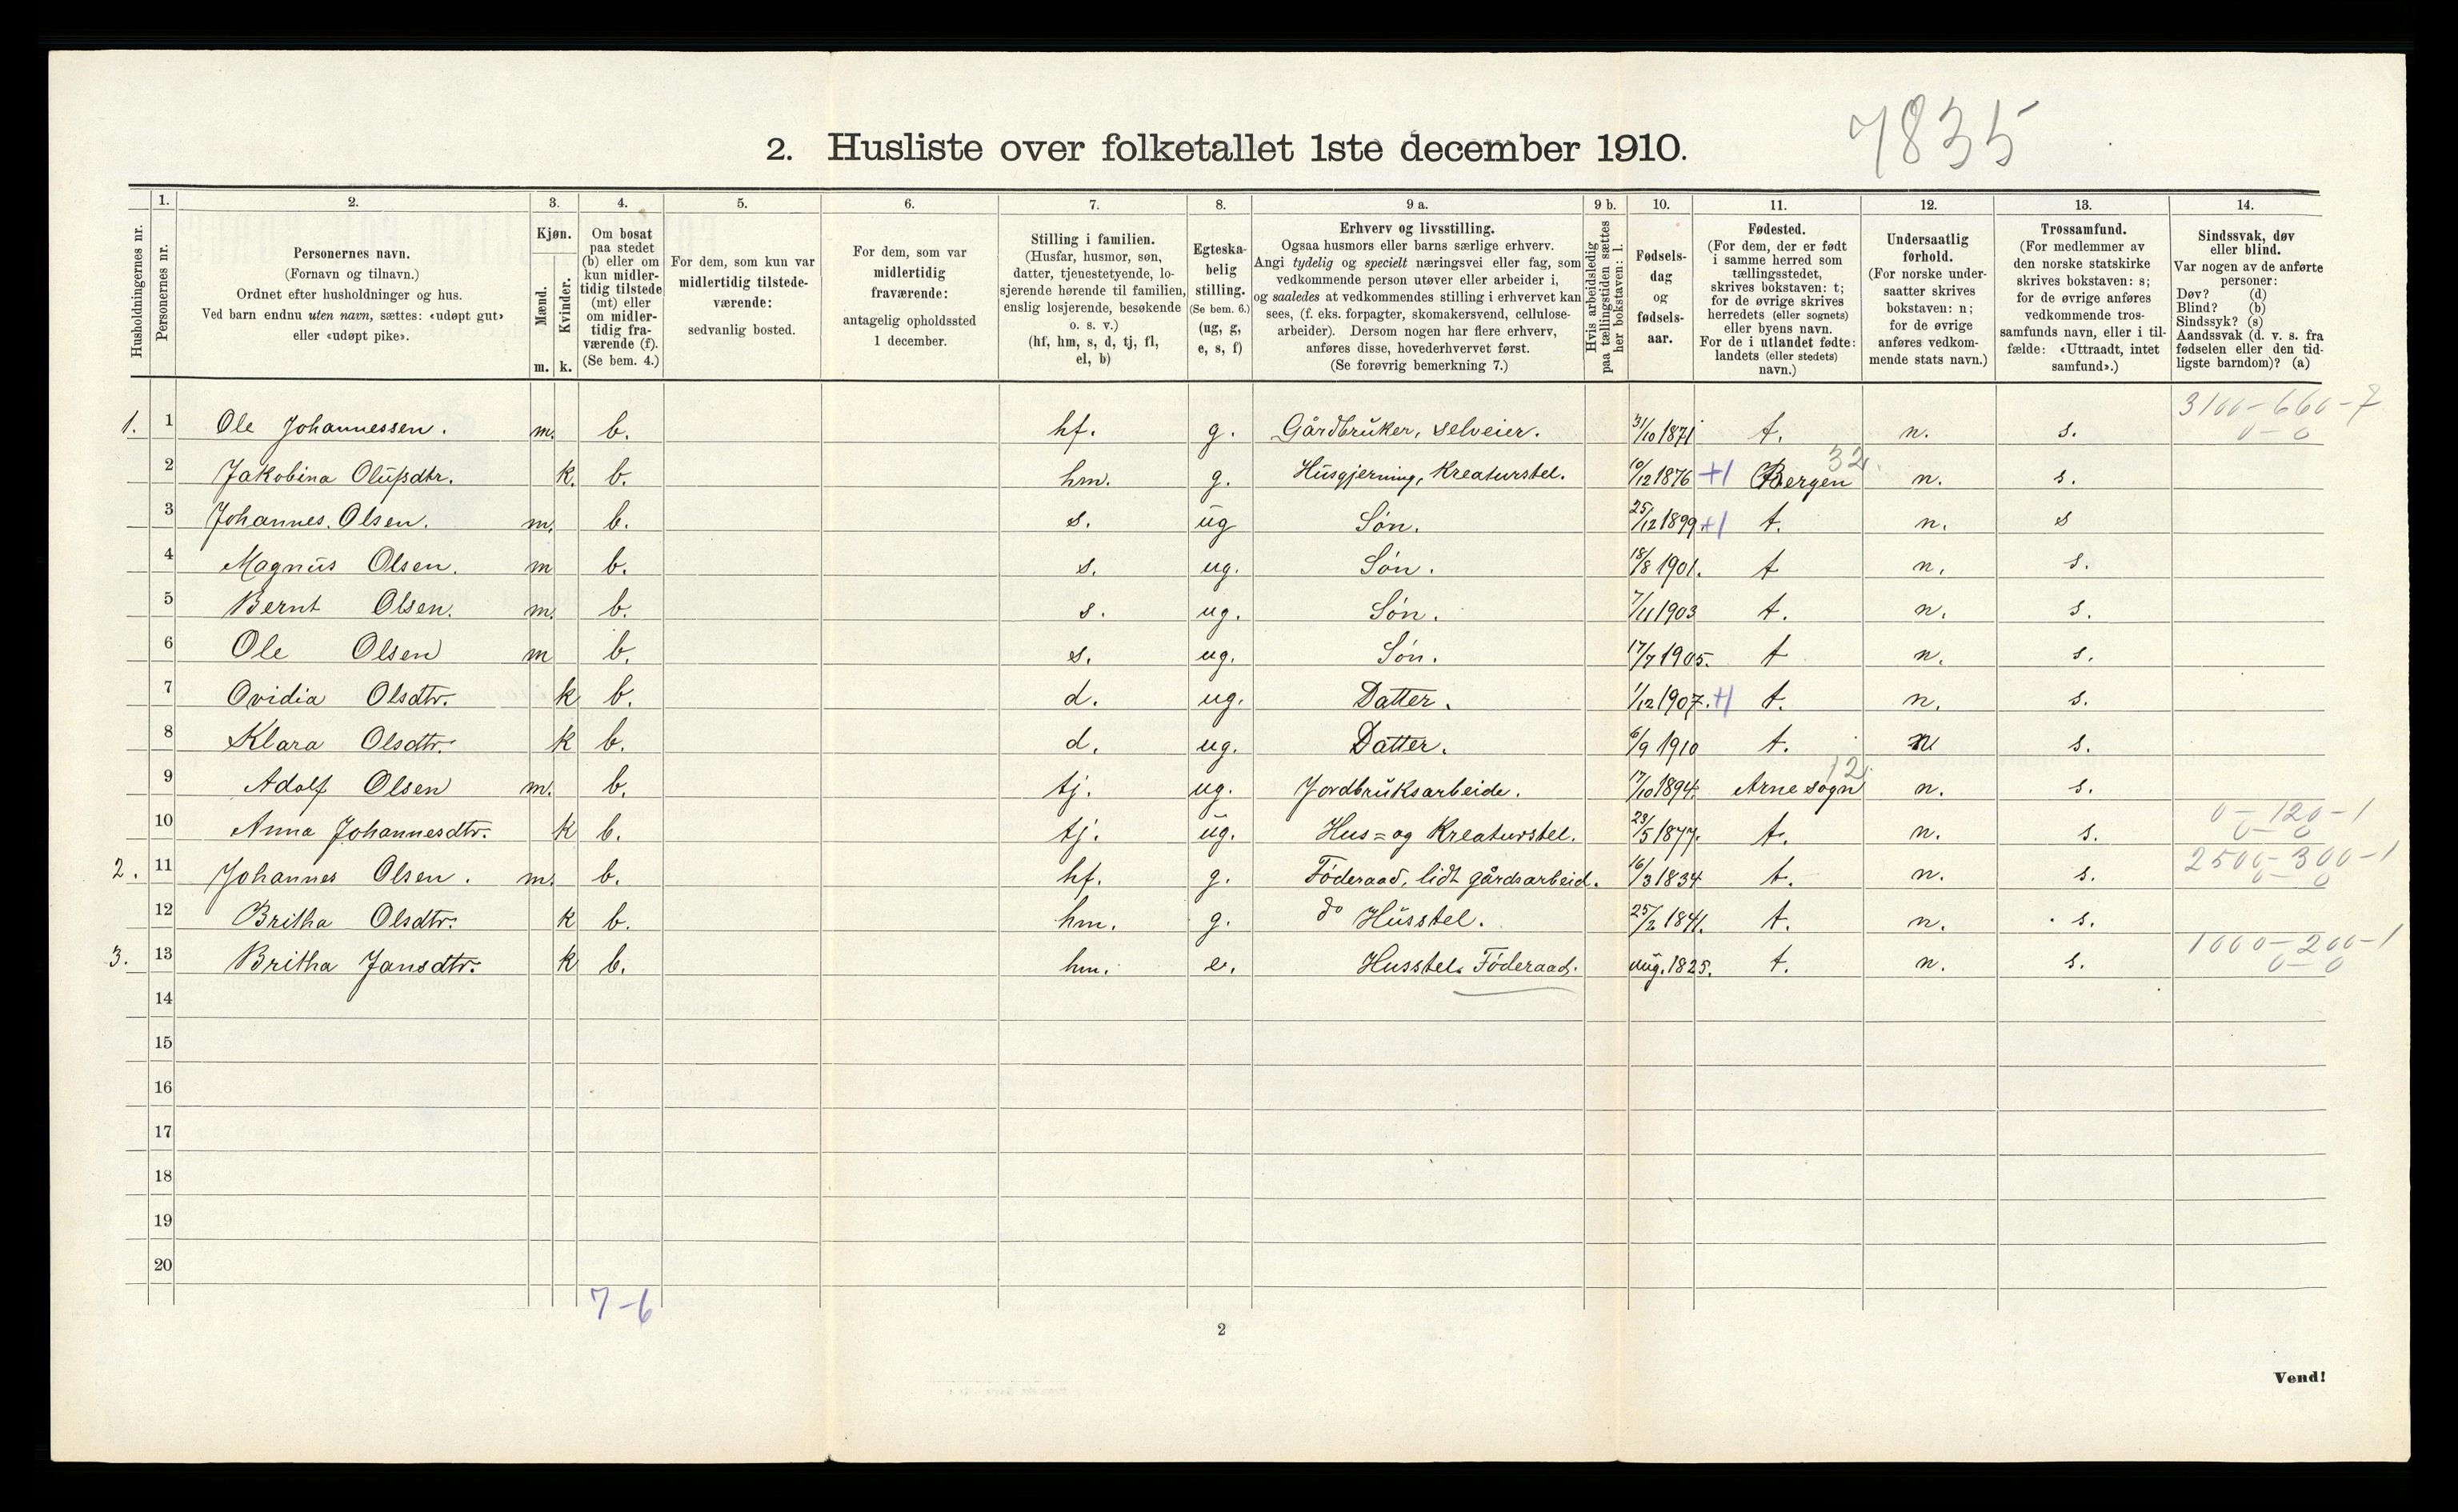 7835
2. Husliste over folketallet 1ste december 1910.
Husholdningernes nr.
1. Personernes nr.
2. Personernes navn.
(Fornavn og tilnavn.)
Ordnet efter husholdninger og hus.
Ved barn endnu uten navn, sættes: «udøpt gut»
eller «udøpt pike».
3. Kjøn.
Mænd. m.
Kvinder. k.
4. Om bosat
paa stedet
(b) eller om
kun midler-
tidig tilstede
(mt) eller
om midler-
tidig fra-
værende (f).
(Se bem. 4.)
5. For dem, som kun var
midlertidig tilstede-
værende:
sedvanlig bosted.
6. For dem, som var
midlertidig
fraværende:
antagelig opholdssted
1 december.
7. Stilling i familien.
(Husfar, husmor, søn,
datter, tjenestetyende, lo-
sjerende hørende til familien,
enslig losjerende, besøkende
o. s. v.)
(hf, hm, s, d, tj, fl,
el, b)
8. Egteska-
belig
stilling.
(Se bem. 6.)
(ug, g,
e, s, f)
9 a. Erhverv og livsstilling.
Ogsaa husmors eller barns særlige erhverv.
Angi tydelig og specielt næringsvei eller fag, som
vedkommende person utøver eller arbeider i,
og saaledes at vedkommendes stilling i erhvervet kan
sees, (f. eks. forpagter, skomakersvend, cellulose-
arbeider). Dersom nogen har flere erhverv,
anføres disse, hovederhvervet først.
(Se forøvrig bemerkning 7.)
9 b. Hvis arbeidsledig
paa tællingstiden sættes
her bokstaven: l.
10. Fødsels-
dag
og
fødsels-
aar.
11. Fødested.
(For dem, der er født
i samme herred som
tællingsstedet,
skrives bokstaven: t;
for de øvrige skrives
herredets (eller sognets)
eller byens navn.
For de i utlandet fødte:
landets (eller stedets)
navn.)
12. Undersaatlig
forhold.
(For norske under-
saatter skrives
bokstaven: n;
for de øvrige
anføres vedkom-
mende stats navn.)
13. Trossamfund.
(For medlemmer av
den norske statskirke
skrives bokstaven: s;
for de øvrige anføres
vedkommende tros-
samfunds navn, eller i til-
fælde: «Uttraadt, intet
samfund».)
14. Sindssvak, døv
eller blind.
Var nogen av de anførte
personer:
Døv? (d)
Blind? (b)
Sindssyk? (s)
Aandssvak (d. v. s. fra
fødselen eller den tid-
ligste barndom)? (a)
1. 1 Ole Johannessen. m. b. hf. g. Gårdbruker, selveier. 31/10 1871 t. n. s. 3100-660-7 0-0
2 Jakobina Olufsdtr. k. b. hm. g. Husgjerning, Kreaturstel. 10/12 1876 +1 Bergen 32. n. s.
3 Johannes. Olsen. m. b. s. ug Søn. 25/12 1899 +1 t. n. s
4 Magnus Olsen. m b. s. ug. Søn. 18/8 1901. t n. s.
5 Bernt Olsen. m. b. s. ug. Søn. 7/11 1903 t. n. s.
6 Ole Olsen m b. s. ug. Søn. 17/7 1905. t n. s.
7 Ovidia Olsdtr. k b. d. ug. Datter. 1/12 1907. +1 t. n. s.
8 Klara Olsdtr. k b. d. ug. Datter. 6/9 1910 t. n s.
9 Adolf Olsen m. b. tj. ug. Jordbruksarbeide. 17/10 1894. Arne sogn 12. n. s.
10 Anna Johannesdtr. k b. tj. ug. Hus= og Kreaturstel. 23/5 1877. t. n. s. 0-120-1 0-0
2. 11 Johannes Olsen. m. b. hf. g. Føderaad, lidt gårdsarbeid. 16/3 1834 t. n. s. 2500-300-1 0-0
12 Britha Olsdtr. k b. hm. g. do Husstel. 25/2 1841. t. n. s.
3. 13 Britha Jansdtr. k b. hm. e. Husstel. Føderaad. aug. 1825. t. n. s. 1000-200-1 0-0
14
15
16
17
18
19
20
7-6
2
Vend!